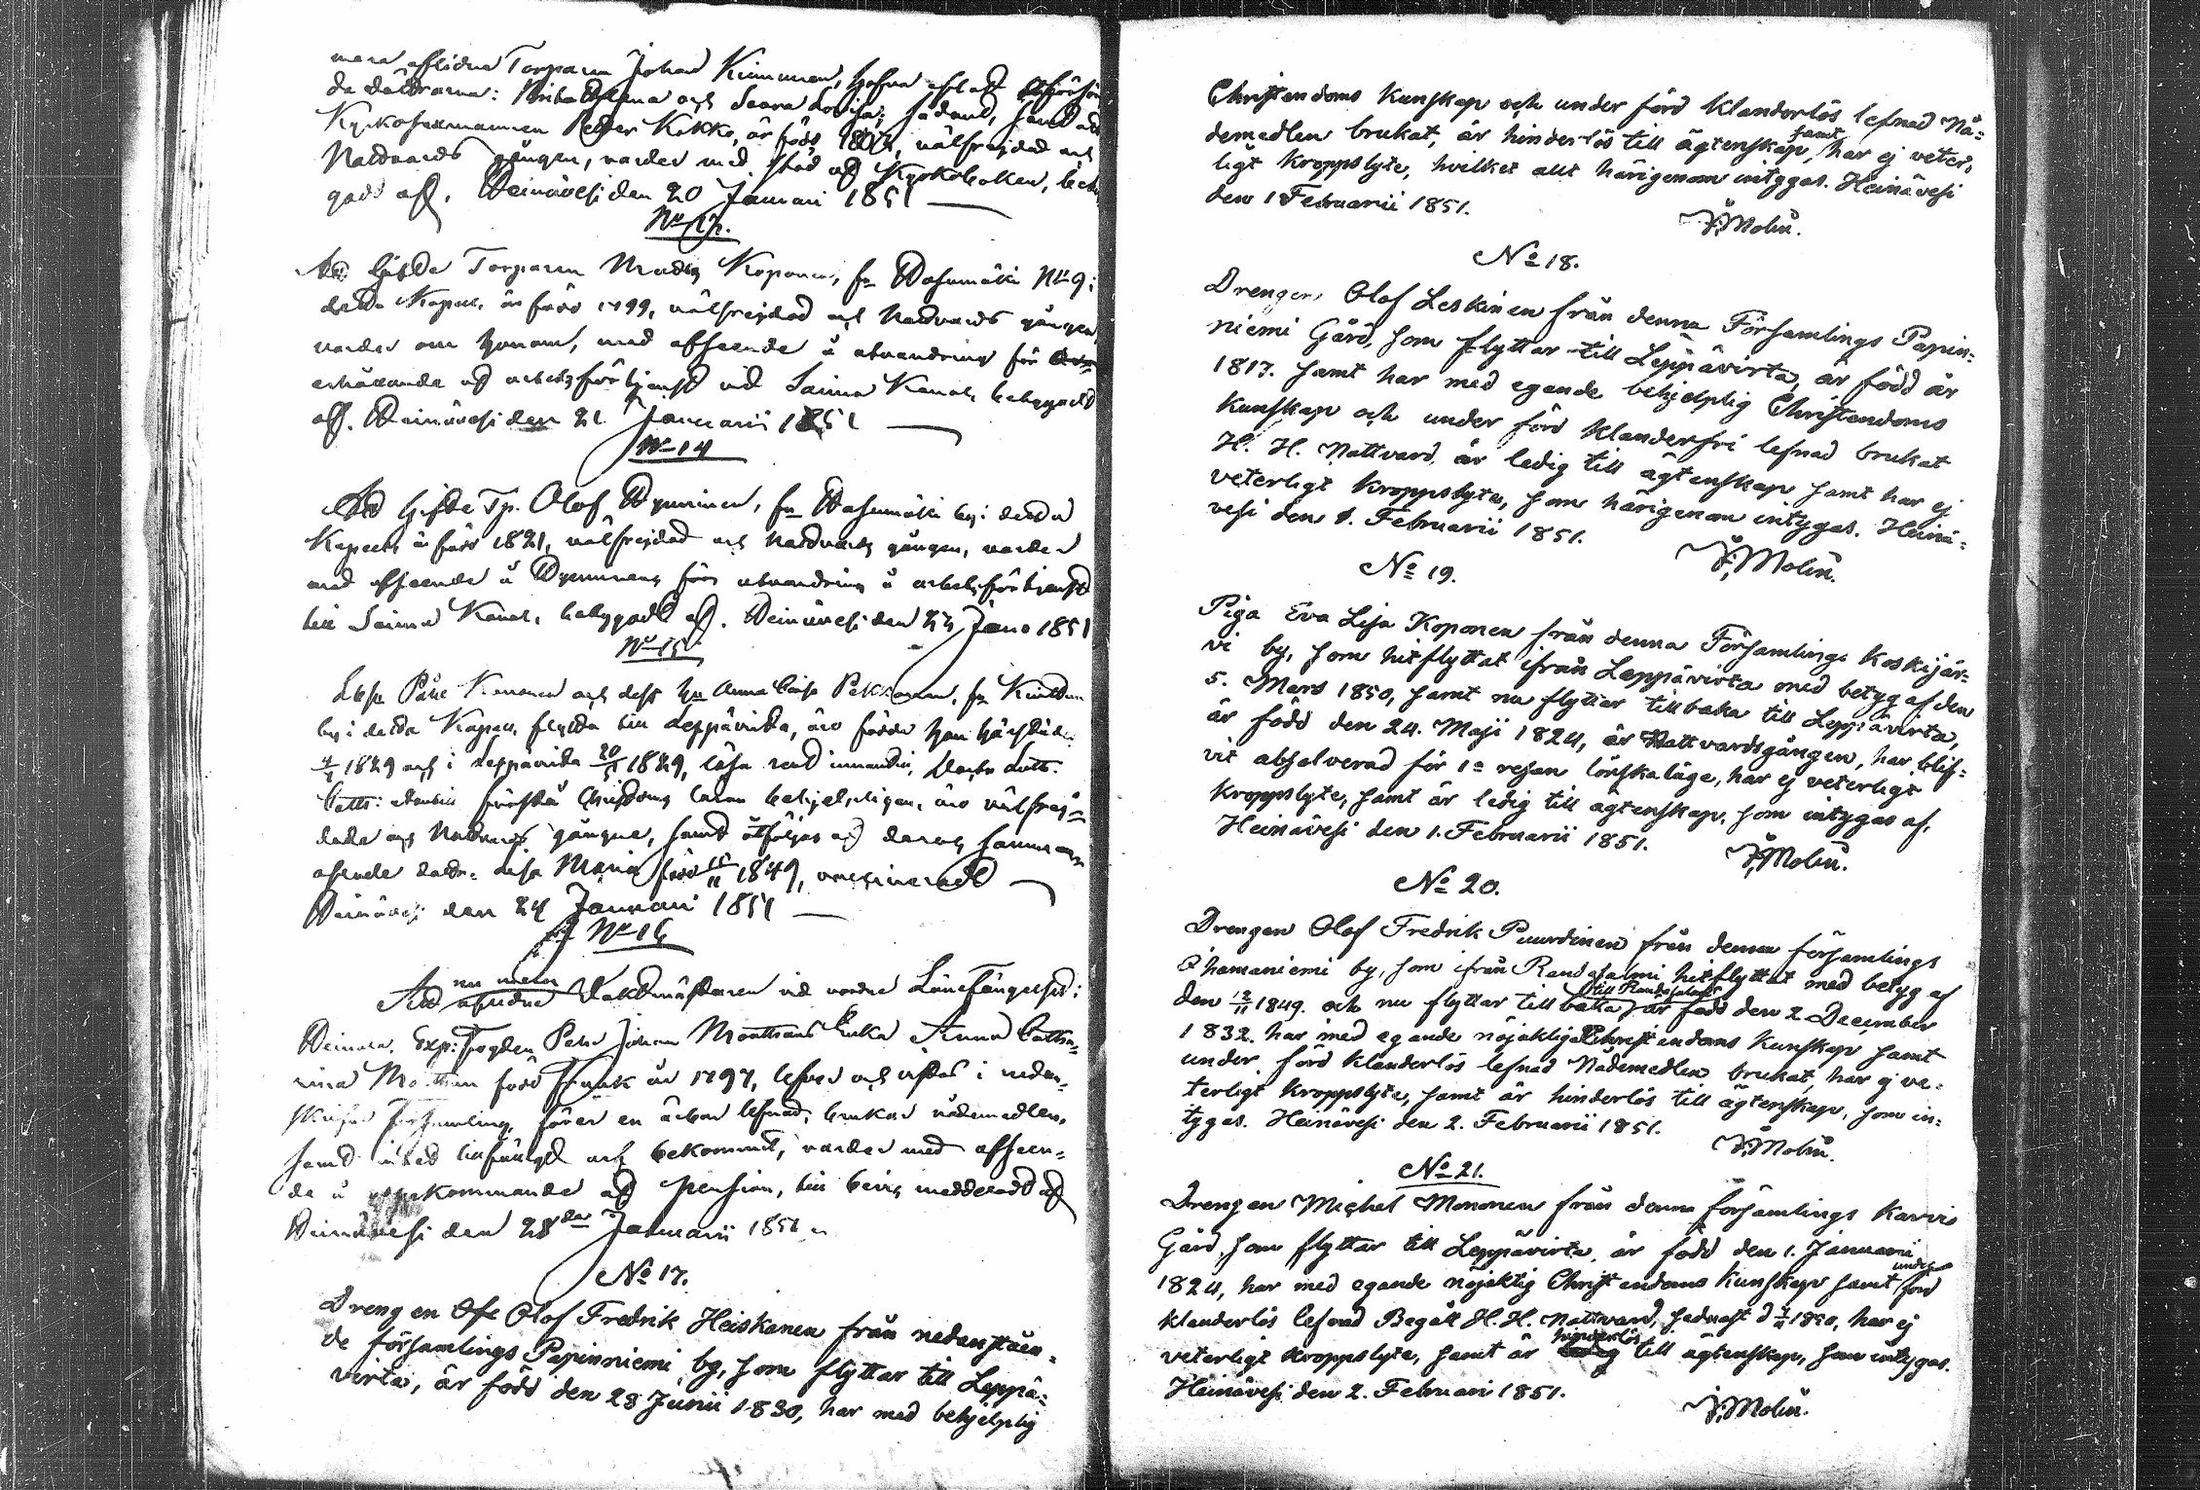 mera aflidne Torparen Johan Kinnunen, hafva
da döttrarna: och Saara Lovisa; sådant, samt att
Kyrkosexmannen Petter Kokko, är född välfrejdad och
Nattvards gången, varder med stöd af Kyrkoboken, bety-
gadt af. Heinävesi den 20 Januari 1851
No 13.
Att Gifte Torparen Koponen, fr. Wasumäki No 9:
detta Kapell, är född 1799, välfrejdad och Nattvards gången,
varder om honom, med afseende å utvandring för
erhållande af arbetsförtjenst vid Saima Kanal, betygadt
af. Heinävesi den 21 Januarii 1851
No 14
Att Gifte Tp. Olof fr. Wasumäki by i detta
Kapell, är född 1821, välfrejdad och Nattvards gången, varder
med afseende å förs utvandring å arbetsförtjenst
till Saima Kanal, betygadt af. Heinävesi den 22 Jan. 1851
No 15
Lösk. Påhl och dess hu Anna Caisa Pekkarinen, fr.
by i detta Kapell, flytta till Leppävirta, äro födde han härstädes
1829 och i Leppävirta 1829, läsa rent innantill, Doctor Luth.
Catk: utantill förstå Christdoms läran behjelpligen, äro välfrej-
dade och Nattvards gångne, samt åtföljas af deras sammen
aflade dotter Maria född 1849,
Heinävesi den 24 Januari 1851
No 16
nu mera
Att aflidne Vaktmästaren vid
Exp: Fogden Johan Enka Anna Catha-
rina född år 1797, lefver och vistas i nedan-
skrifne Församling, förer en ärbar lefnad, brukar nådemedlen,
samt är och bekommit, varder med afseen-
de å af pension, till bevis meddeladt af
Heinävesi den 28de Januarii 1851
No 17.
Drengen Olof Fredrik Heiskanen från nedanståen-
de församlings Papinniemi by, som flyttar till Leppä-
virta, är född den 28 Junii 1830, har med behjelplig
Christendoms Kunskap och under förd klanderlös lefnad Nå-
demedlen brukat, är hinderlös till ägtenskap, samt har ej veter-
ligt Kroppslyte, hvilket allt härigenom intygas. Heinävesi
den 1 Februarii 1851.
J. Molin.
No 18.
Drengen Olof Leskinen från denna Församlings Papin-
niemi Gård, som flyttar till Leppävirta, är född år
1817. samt har med egande behjelplig Christendoms
Kunskap och under förd klanderfri lefnad brukat
H. H. Nattvard, är ledig till ägtenskap samt har ej
veterligt Kroppslyte, som härigenom intygas. Heinä-
vesi den 1. Februarii 1851.
J. Molin.
No 19.
Piga Eva Lisa Koponen från denna Församlings Koskijär-
vi by, som hitflyttat ifrån Leppävirta med betyg af den
5. Mars 1850, samt nu flyttar tillbaka till Leppävirta,
är född den 24. Maji 1824, är Nattvardsgången, har blif-
vit absolverad för 1a resan lönskaläge, har ej veterligt
Kroppslyte, samt är ledig till ägtenskap, som intygas af,
Heinävesi den 1. Februarii 1851.
J. Molin.
No 20.
Drengen Olof Fredrik Puurdinen från denna församlings
Ihamaniemi by, som ifrån Randasalmi hitflyttat med betyg af
den 1849. och nu flyttar tillbaka till Randasalmi, är född den 2 December
1832. har med egande nöjaktige Christendoms Kunskap samt
under förd klanderlös lefnad Nådemedlen brukat, har ej ve-
terligt Kroppslyte, samt är hinderlös till ägtenskap, som in-
tygas. Heinävesi den 2. Februarii 1851.
J. Molin.
No 21.
Drengen Michel Mononen från denna församlings Karvio
Gård, som flyttar till Leppävirta, är född den 1. Januarii
1824, har med egande nöjaktig Christendoms Kunskap samt under förd
klanderlös lefnad Begått H. H. Nattvard, sednast d 1850, har ej
veterligt Kroppslyte, samt är hinderlös till ägtenskap, som intygas.
Heinävesi den 2. Februari 1851.
J. Molin.